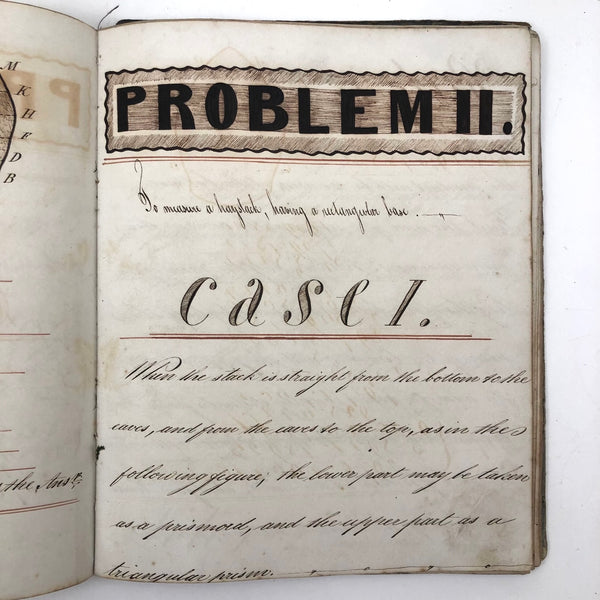 M
K
H
F
D
B
the Ans.r
PROBLEM II.
To measure a haystack, having a rectangular base.
Case I.
When the stack is straight from the bottom to the
eaves, and from the eaves to the top, as in the
following figure; the lower part may be taken
as a prismoid, and the upper part as a
triangular prism.